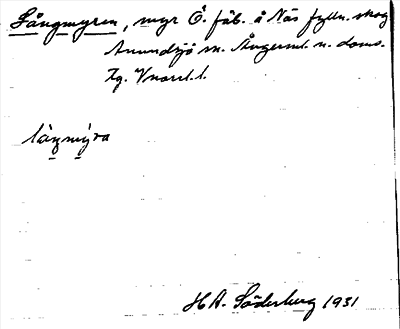 Långmyren, myr Ö. fäb. å Näs fjäll. skog
Anundsjö sn. Ångerml. n. doms.
Tg. Vnorrl. l.
làŋmy̲ra
H A. Söderberg 1931